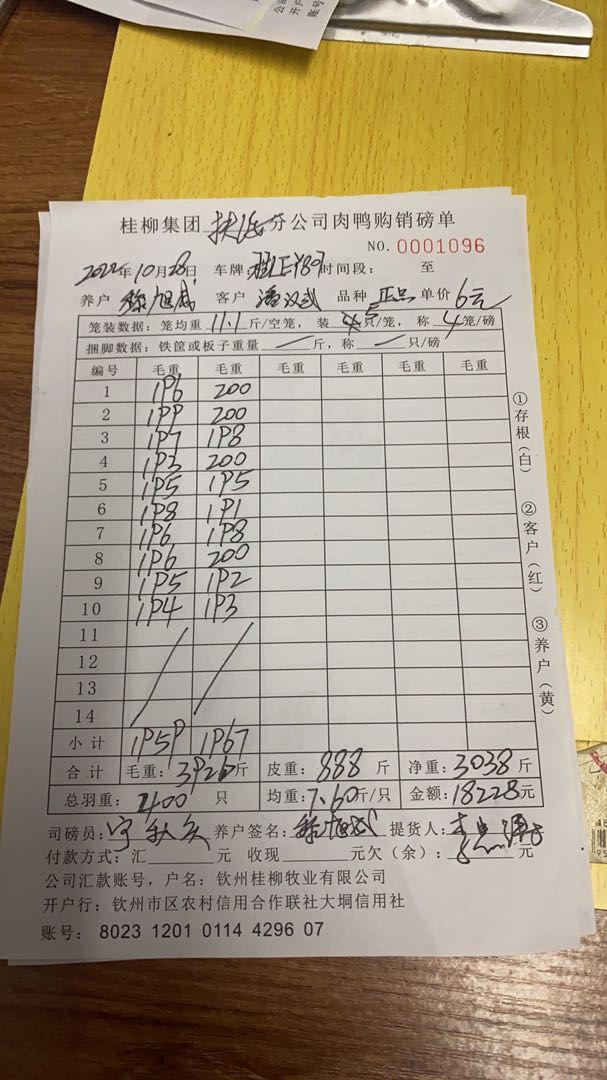 桂柳集团 扶隆 分公司肉鸭购销磅单
NO. 0001096
2022年10月28日 车牌: 时间段: 至
养户 客户 潘汉武 品种 正品 单价 6元
笼装数据: 笼均重 11.1 斤/空笼, 装 5 只/笼, 称 4 笼/磅
捆脚数据: 铁筐或板子重量 / 斤, 称 / 只/磅
编号 毛重 毛重 毛重 毛重 毛重 毛重
1 196 200
2 199 200
3 197 198
4 193 200
5 195 195
6 198 191
7 196 198
8 196 200
9 195 192
10 194 193
11
12
13
14
小计 1959 1967
合计 毛重: 3926斤 皮重: 888 斤 净重: 3038 斤
总羽重: 400 只 均重: 7.60斤/只 金额: 18228元
司磅员: 养户签名: 提货人:
付款方式: 汇 元 收现 元欠(余): 元
公司汇款账号, 户名: 钦州桂柳牧业有限公司
开户行: 钦州市区农村信用合作联社大垌信用社
账号: 8023 1201 0114 4296 07
①存根(白) ②客户(红) ③养户(黄)